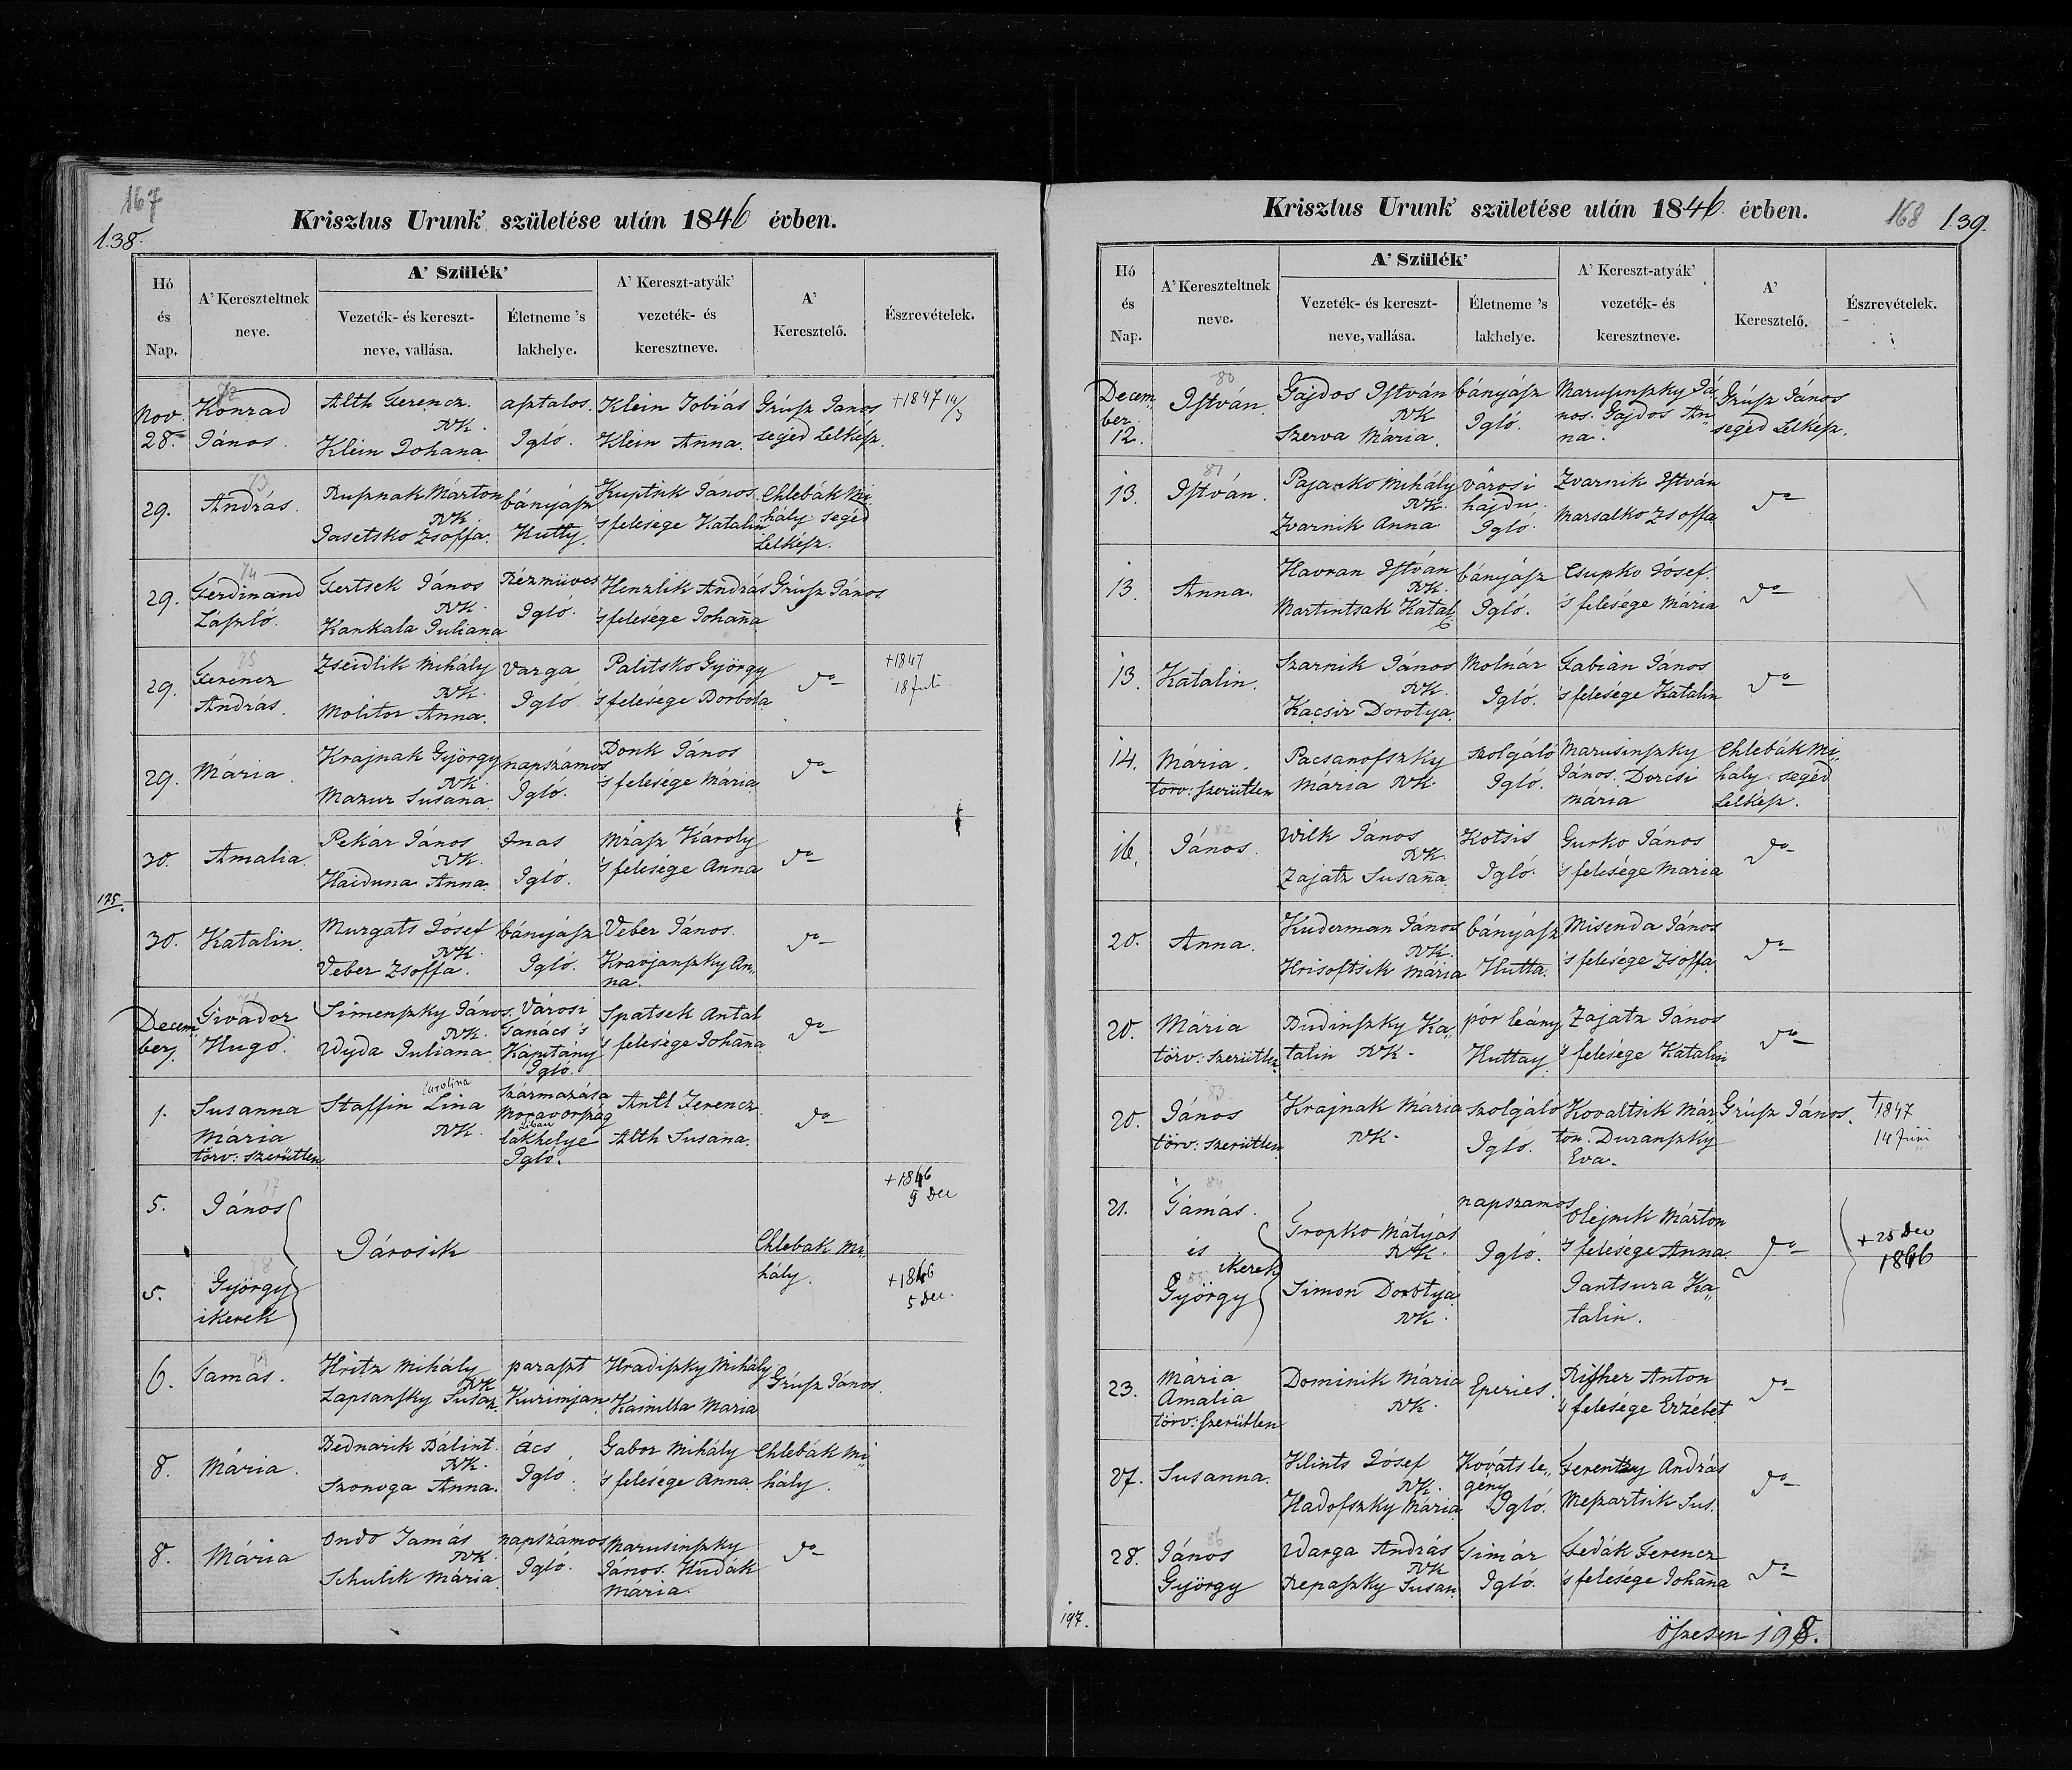 167
138.
Krisztus Urunk' születése után 1846 évben.
Hó és Nap.
A' Kereszteltnek neve.
A' Szülék'
Vezeték- és kereszt-neve, vallása.
Életneme 's lakhelye.
A' Kereszt-atyák' vezeték- és keresztneve.
A' Keresztelő.
Észrevételek.
72
Nov. Konrad Alth Ferencz. asztalos. Klein Tobiás Grúsz Janos +1847 14/3
RK.
28. János. Klein Johana Igló. Klein Anna. segéd Lelkész.
73
29. András. Rusznak Márton bányász Kuptsik János. Chlebák Mi
RK. hály segéd
Jasetsko Zsoffa. Hutty. 's felesége Katalin Lelkész.
74
29. Ferdinand Fertsek János Rézmüves Henzlik András Grúsz János.
RK.
László. Kankala Juliana Igló. 's felesége Johana
75
29. Ferencz Zseidlik Mihály Varga Palitsko György do +1847
RK. 18 Juli
András. Molitor Anna. Igló 's felesége Borbola
29. Mária. Krajnak György napszámos Donk János do
RK.
Mazur Susana Igló. 's felesége Mária
30. Amalia. Pekár János Inas Mrász Károly do
RK.
Haiduna Anna. Igló. 's felesége Anna
175.
30. Katalin. Murgats Jósef bányász Veber János. do
RK.
Veber Zsoffa. Igló. Kravjanszky An,,
na.
Decem Tivador Simenszky János. Városi Spatsek Antal do
RK. Tanács 's
ber, Hugo. Wyda Juliana Kapitány 's felesége Johana
Igló.
Carolina
1. Susanna Staffin Lina Származása Antl Ferencz. do
Mária RK. Moravország
Libau
törv: szerütlen lakhelye Alth Susana.
Igló.
77
5. János +1846
5 Dec
Járosik Chlebak Mi,,
hály.
78
5. György +1846
ikerek 5 Dec.
79
6. Tamás. Hritz Mihály paraszt Hradiszky Mihály Grúsz János.
RK
Lapsansky Susan. Kurimjan Maria
8. Mária. Bednarik Bálint. ács Gabor Mihály Chlebák Mi
RK.
Szonoga Anna. Igló. 's felesége Anna. hály.
8. Mária Ondo Tamás napszámos Marusinszky do
RK. János. Hudák
Schulik Mária Igló. Mária.
168 139.
Krisztus Urunk' születése után 1846. évben.
Hó és Nap.
A' Kereszteltnek neve.
A' Szülék'
Vezeték- és kereszt-neve, vallása.
Életneme 's lakhelye.
A' Kereszt-atyák' vezeték- és keresztneve.
A' Keresztelő.
Észrevételek.
80
Decem,, István. Gajdos István bányász Marusinszky Já Grúsz János
ber RK nos. Gajdos An,, segéd Lelkész.
12. Szerva Maria. Igló. na.
81
13. István. Pajacko Mihály városi Zvarnik István do
RK. hajdu
Zvarnik Anna Igló. Marsalko Zsoffa
13. Anna. Havran István bányász Csupko Jósef. do
RK.
Martintsak Katal. Igló. 's felesége Mária
13. Katalin. Szarnik János Molnár Fabián János do
RK.
Kacsir Dorotya. Igló. 's felesége Katalin
14. Mária. Pacsanofszky szolgáló Marusinszky Chlebák Mi,,
törv: szerütlen Mária RK. Igló. János. Dorcsi hály. segéd
Mária Lelkész.
82
16. János. Wilk János Kotsis Gurko János do
RK.
Zajatz Susana. Igló. 's felesége Maria
20. Anna. Kuderman János bányász Misenda János do
RK.
Hrisoftsik Mária Hutta. 's felesége Zsoffa
20. Mária Budinszky Ka,, pór leány Zajatz János do
törv: szerütlen talin RK. Huttay. 's felesége Katalin
83
20. János Krajnak Maria szolgáló Kovaltsik Már,, Grúsz János. +1847
törv: szerütlen RK. Igló. ton. Duranszky 14 Juni
Eva.
84
21. Tamás. Tropko Mátyás napszamos Olejnik Márton do + 25 Dec
és RK. Igló. 's felesége Anna. 1846
ikerek
85
György Simon Dorotya Jantsura Ka,,
RK. talin.
23. Mária Dominik Mária Eperies. Anton do
Amalia RK.
törv: szerütlen 's felesége Erzébet
27. Susanna. Klints Jósef Kováts le,, András do
RK. gény
Hadofszky Maria Igló. Sus.
86
28. János Warga András Timár Fedák Ferencz do
RK
György Repaszky Susan. Igló. 's felesége Johana
197.
öszesen 198.